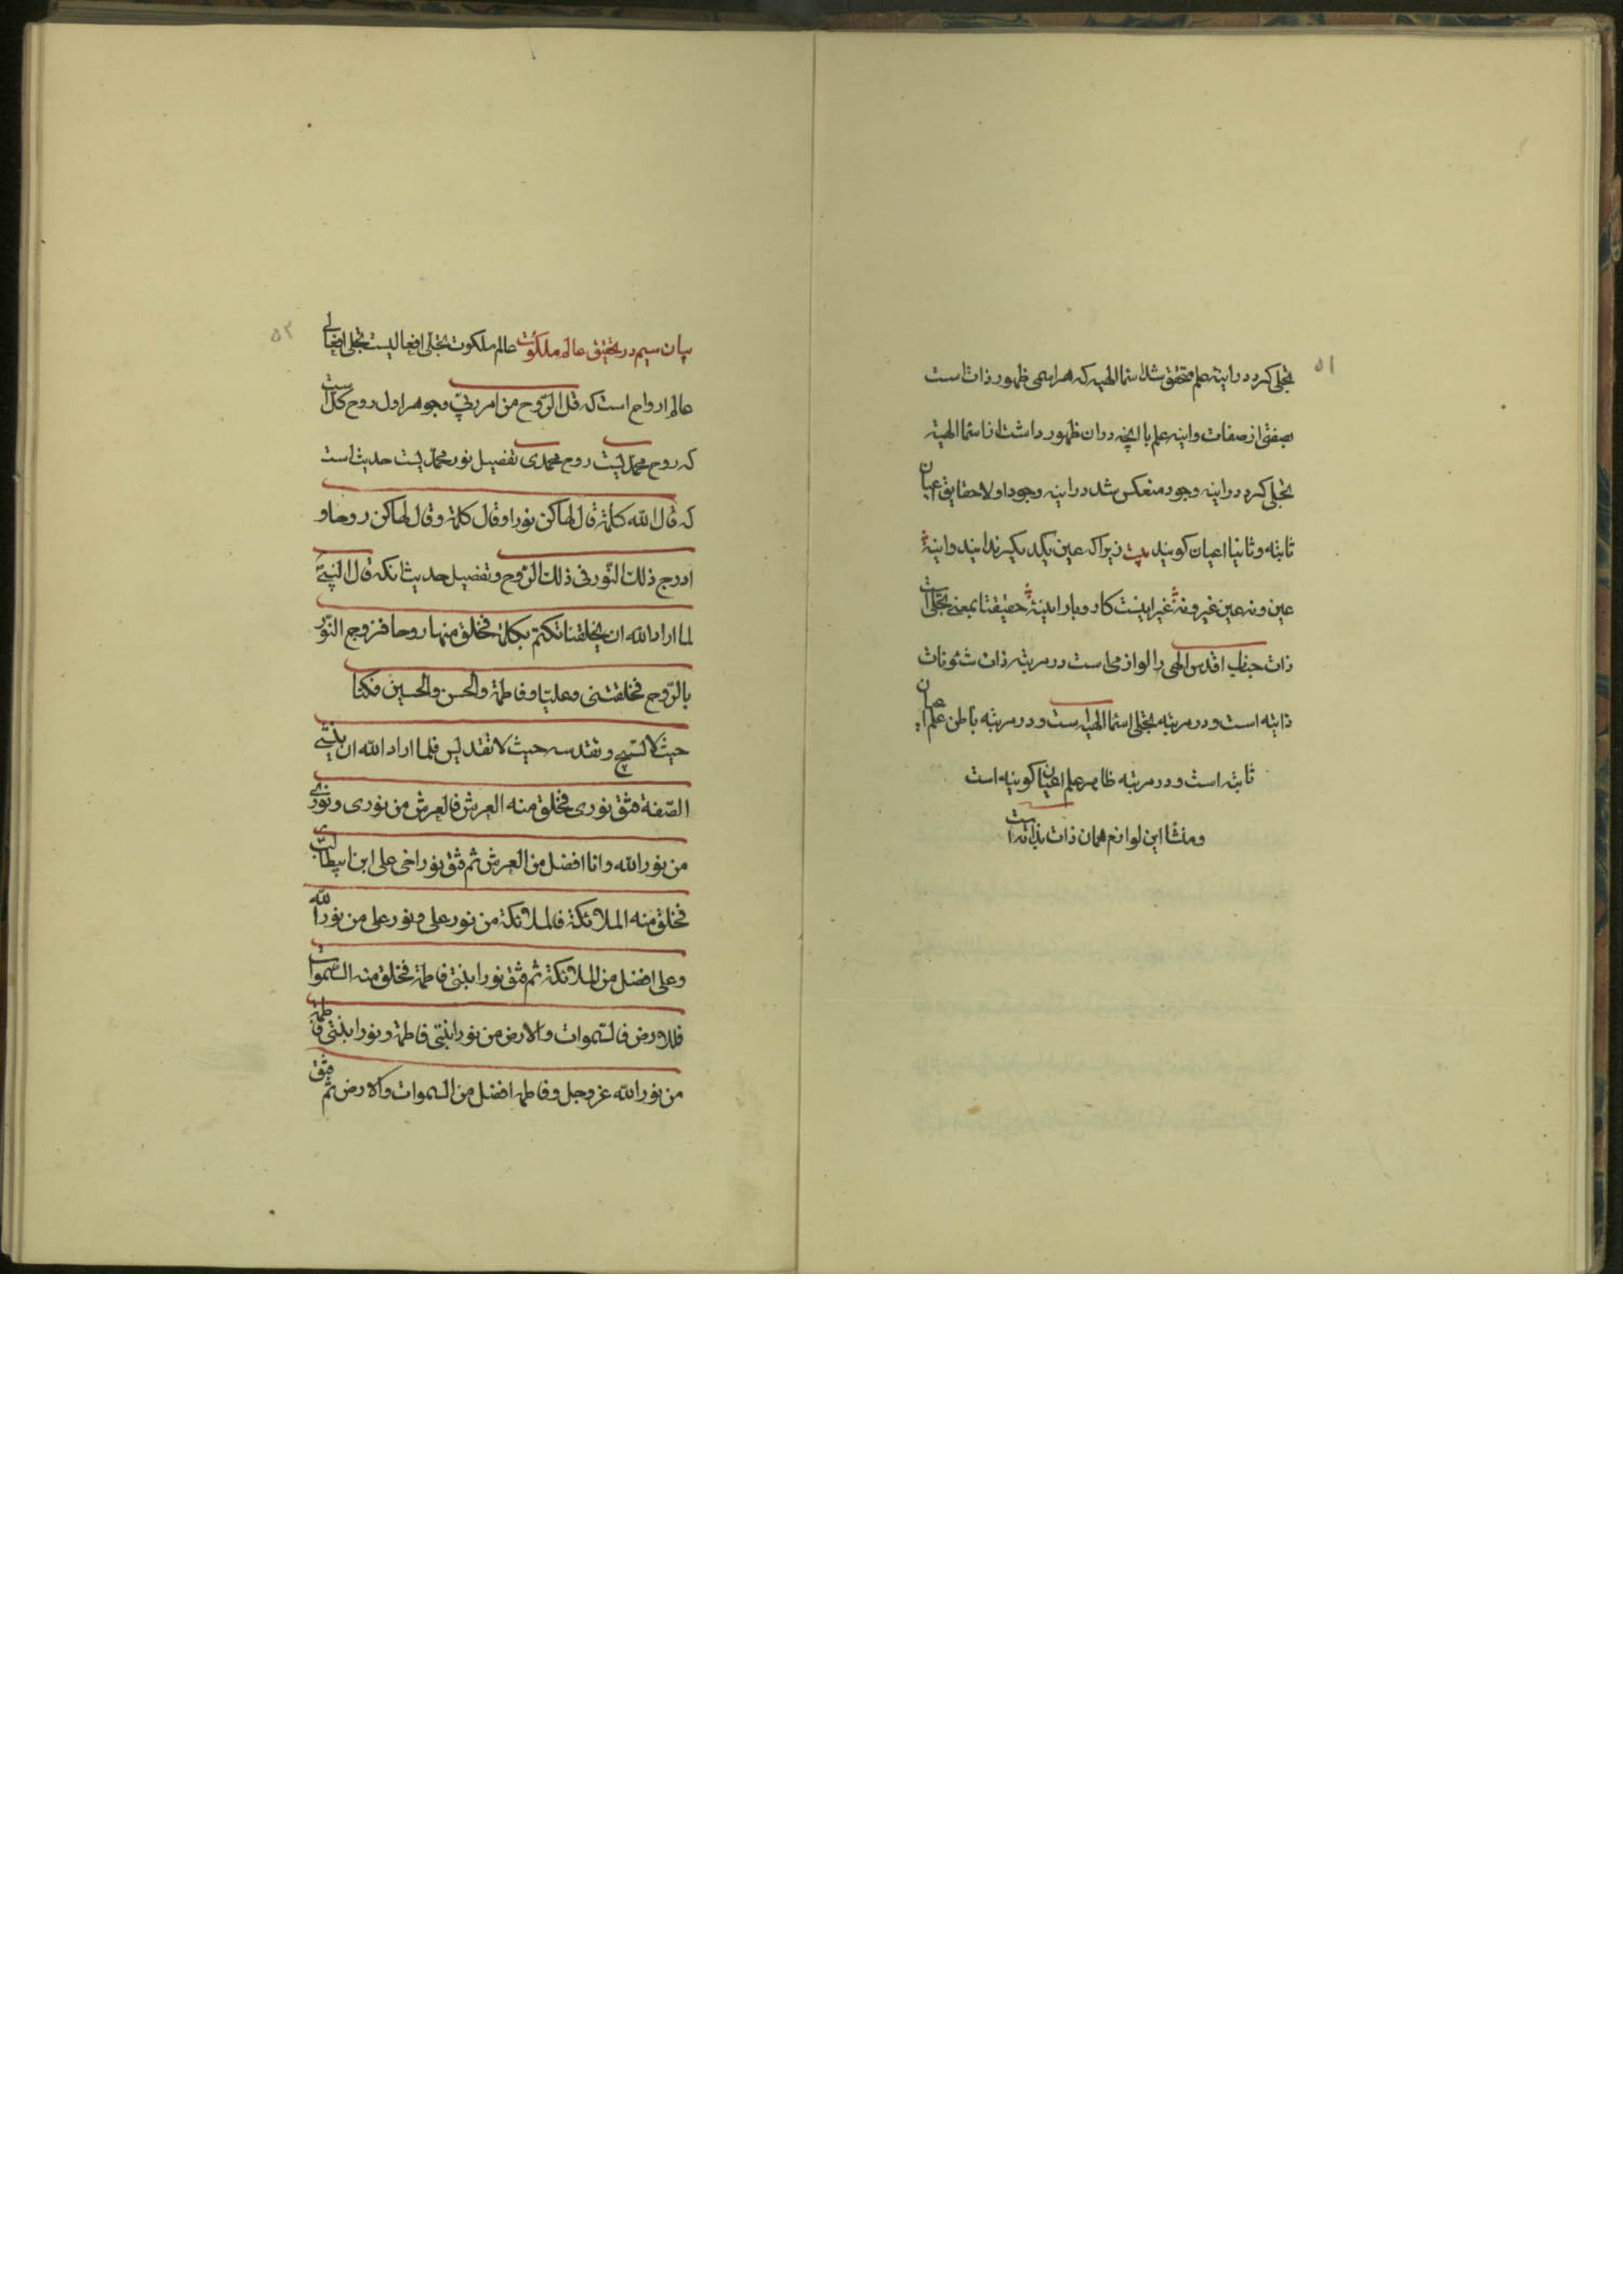 ۵۱
تجلی کرد در اینهٔ علم متحقق شد اسما الهیه که هر اسمی ظهور ذات است
بصفتی از صفات و اینه علم با انچه در ان ظهور داشت از اسما الهیه
تجلی کرد در اینه وجود منعکس شد در اینه وجود اولا حقایق اعیان
ثابته و ثانیا اعیان کونیه زیرا که عین یکدیکیرند اینه و اینهٔ
عین و نه عین غیر و نه غیر اینست کار و بار اینهٔ حقیقتا بمعنی تجلی است
ذات جناب اقدس الهی را لوازمی است در مرتبه ذات شئونات
ذاتیه است و در مرتبه تجلی اسما الهیه است و در مرتبه باطن علم اعیان
ثابته است و در مرتبه ظاهر علم اعیان کونیه است
و منشا این لوازم همان ذات بذاته است
۵۲
بیان سیم در تحقیق عالم ملکوت عالم ملکوت تجلی افعالیست تجلی افعالی
عالم ارواح است که قل الروح من امر ربی و جوهر اول روح کل است
که روح محمدیست روح محمدی تفصیل نور محمدیست حدیث است
که قال الله کلمة قال لها کن نورا و قال کلمة و قال لها کن روحا و
ادرج ذلک النور فی ذلک الروح و تفصیل حدیث انکه قال النبی
لما اراد الله ان یخلقنا تکلم بکلمة فخلق منها روحا فزوج النور
بالروح فخلقنی و علیا و فاطمة و الحسن و الحسین فکنا
حیث لا تسبیح و نقدسه حیث لا تقدیس فلما اراد الله ان ینشئ
الصفة فتق نوری فخلق منه العرش فالعرش من نوری و نوری
من نور الله و انا افضل من العرش ثم فتق نور اخی علی ابن ابیطالب
فخلق منه الملائکة فالملائکة من نور علی و نور علی من نور الله
و علی افضل من الملائکة ثم فتق نور ابنتی فاطمة فخلق منه السموات
فالارض فالسموات و الارض من نور ابنتی فاطمة و نور ابنتی فاطمة
من نور الله عز و جل و فاطمه افضل من السموات و الارض ثم فتق